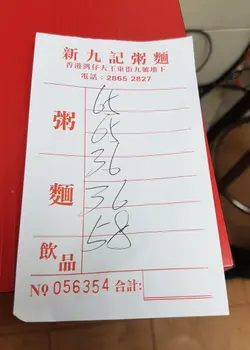 新九記粥麵
香港灣仔大王東街九號地下
電話：2865 2827
粥
65
65
36
麵
36
58
飲品
No 056354 合計：